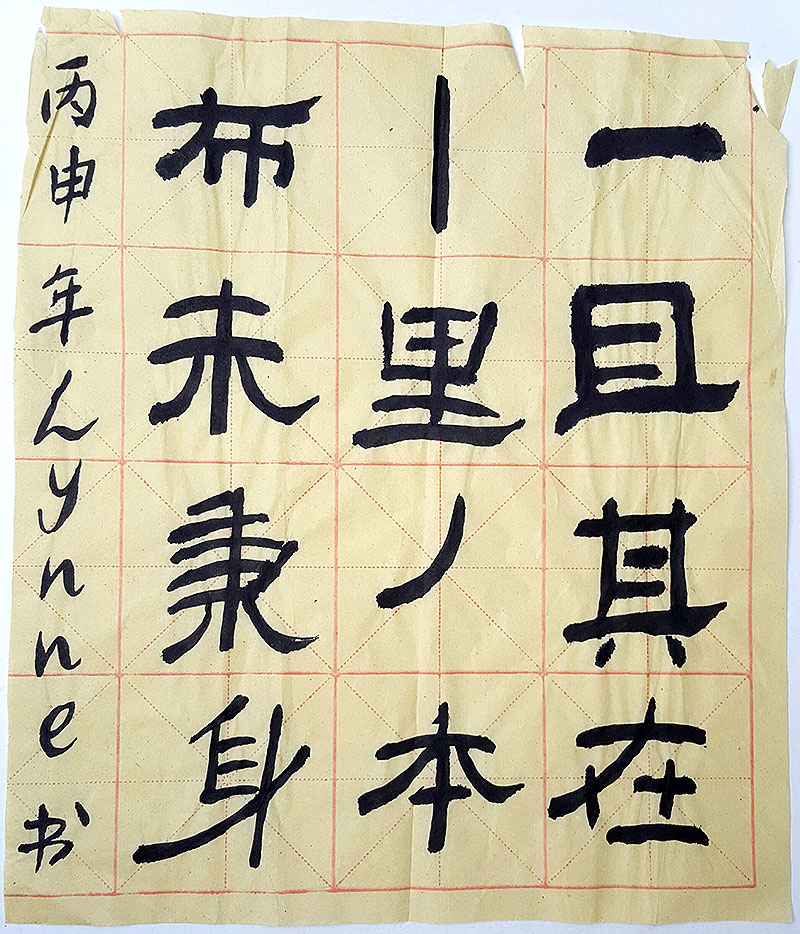 一且其在
丨里丿本
布未秉身
丙申年Lynne书